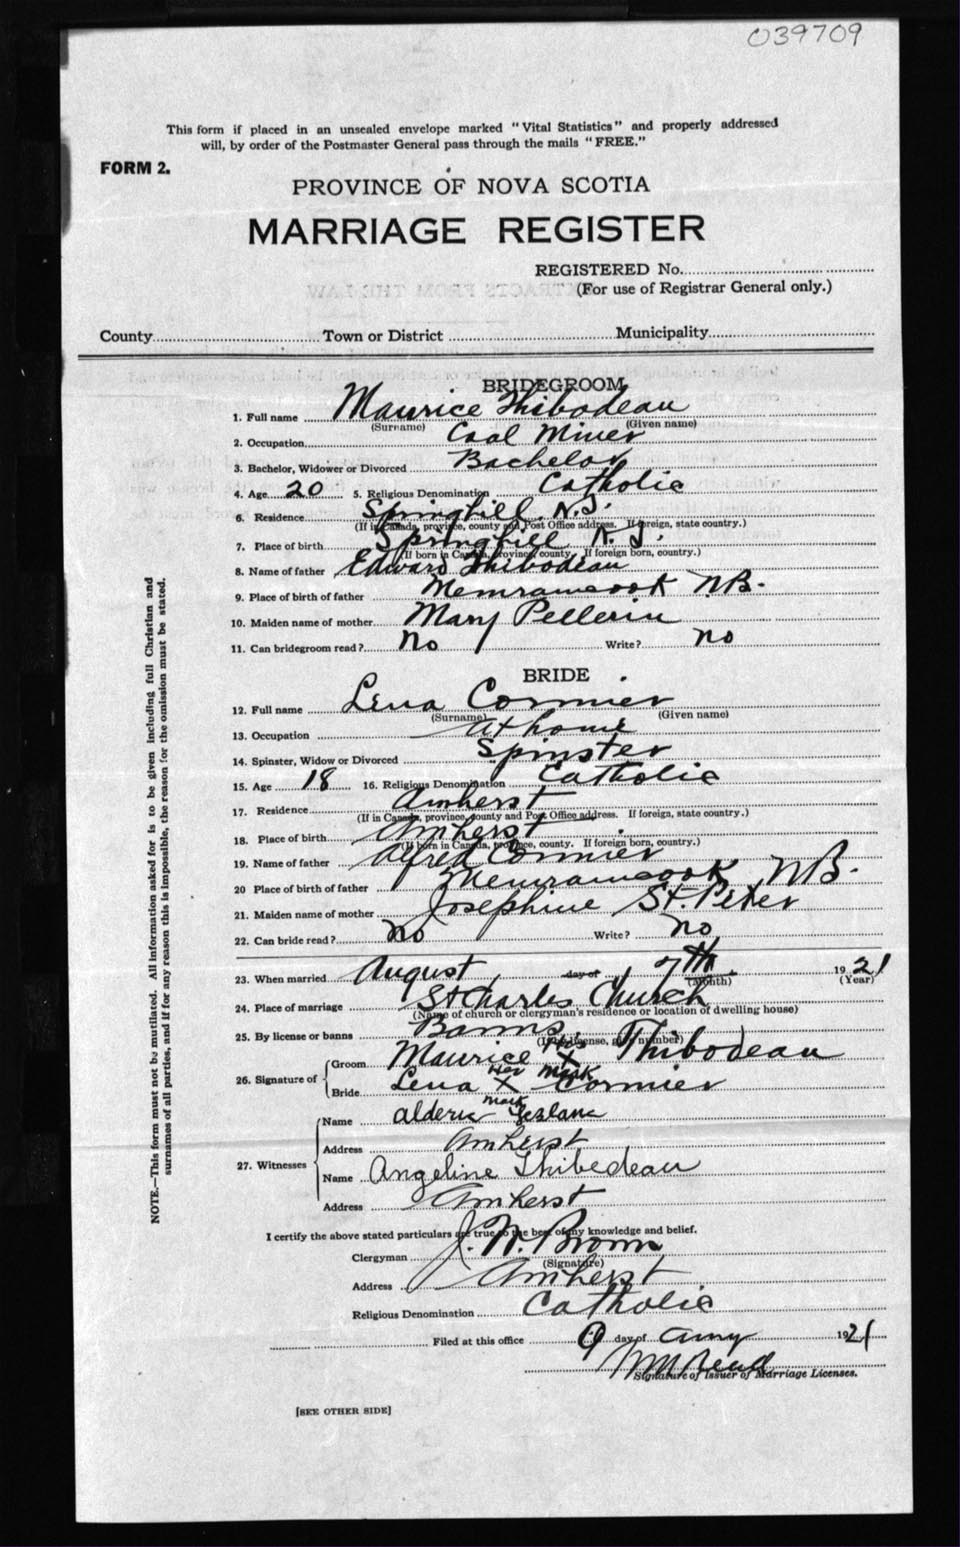 039709
This form if placed in an unsealed envelope marked "Vital Statistics" and properly addressed
will, by order of the Postmaster General pass through the mails "FREE."
FORM 2.
PROVINCE OF NOVA SCOTIA
MARRIAGE REGISTER
REGISTERED No.
(For use of Registrar General only.)
County Town or District Municipality
BRIDEGROOM
1. Full name Maurice Thibodeau
(Surname) (Given name)
2. Occupation Coal Miner
3. Bachelor, Widower or Divorced Bachelor
4. Age 20 5. Religious Denomination Catholic
6. Residence Springhill N.S.
(If in Canada, province, county and Post Office address. If foreign, state country.)
7. Place of birth Springhill N.S.
(If born in Canada, province, county. If foreign born, country.)
8. Name of father Edward Thibodeau
9. Place of birth of father Memramcook NB.
10. Maiden name of mother Mary Pellerin
11. Can bridegroom read? No Write? no
BRIDE
12. Full name Lena Cormier
(Surname) (Given name)
13. Occupation at home
14. Spinster, Widow or Divorced Spinster
15. Age 18 16. Religious Denomination Catholic
17. Residence Amherst
(If in Canada, province, county and Post Office address. If foreign, state country.)
18. Place of birth Amherst
(If born in Canada, province, county. If foreign born, country.)
19. Name of father Alfred Cormier
20 Place of birth of father Memramcook NB.
21. Maiden name of mother Josephine St Peter
22. Can bride read? no Write? no
23. When married August day of 7th 1921
(Month) (Year)
24. Place of marriage St Charles Church
(Name of church or clergyman's residence or location of dwelling house)
25. By license or banns Banns
(If by license, give number)
26. Signature of
Groom Maurice His X Mark Thibodeau
Bride Lena Her X Mark Cormier
27. Witnesses
Name
Address Amherst
Name Angeline Thibedeau
Address Amherst
I certify the above stated particulars are true to the best of my knowledge and belief.
Clergyman J. W. Brown
(Signature)
Address Amherst
Religious Denomination Catholic
Filed at this office 9 day of 1921
Signature of Issuer of Marriage Licenses.
[SEE OTHER SIDE]
NOTE.—This form must not be mutilated. All information asked for is to be given including full Christian and
surnames of all parties, and if for any reason this is impossible, the reason for the omission must be stated.